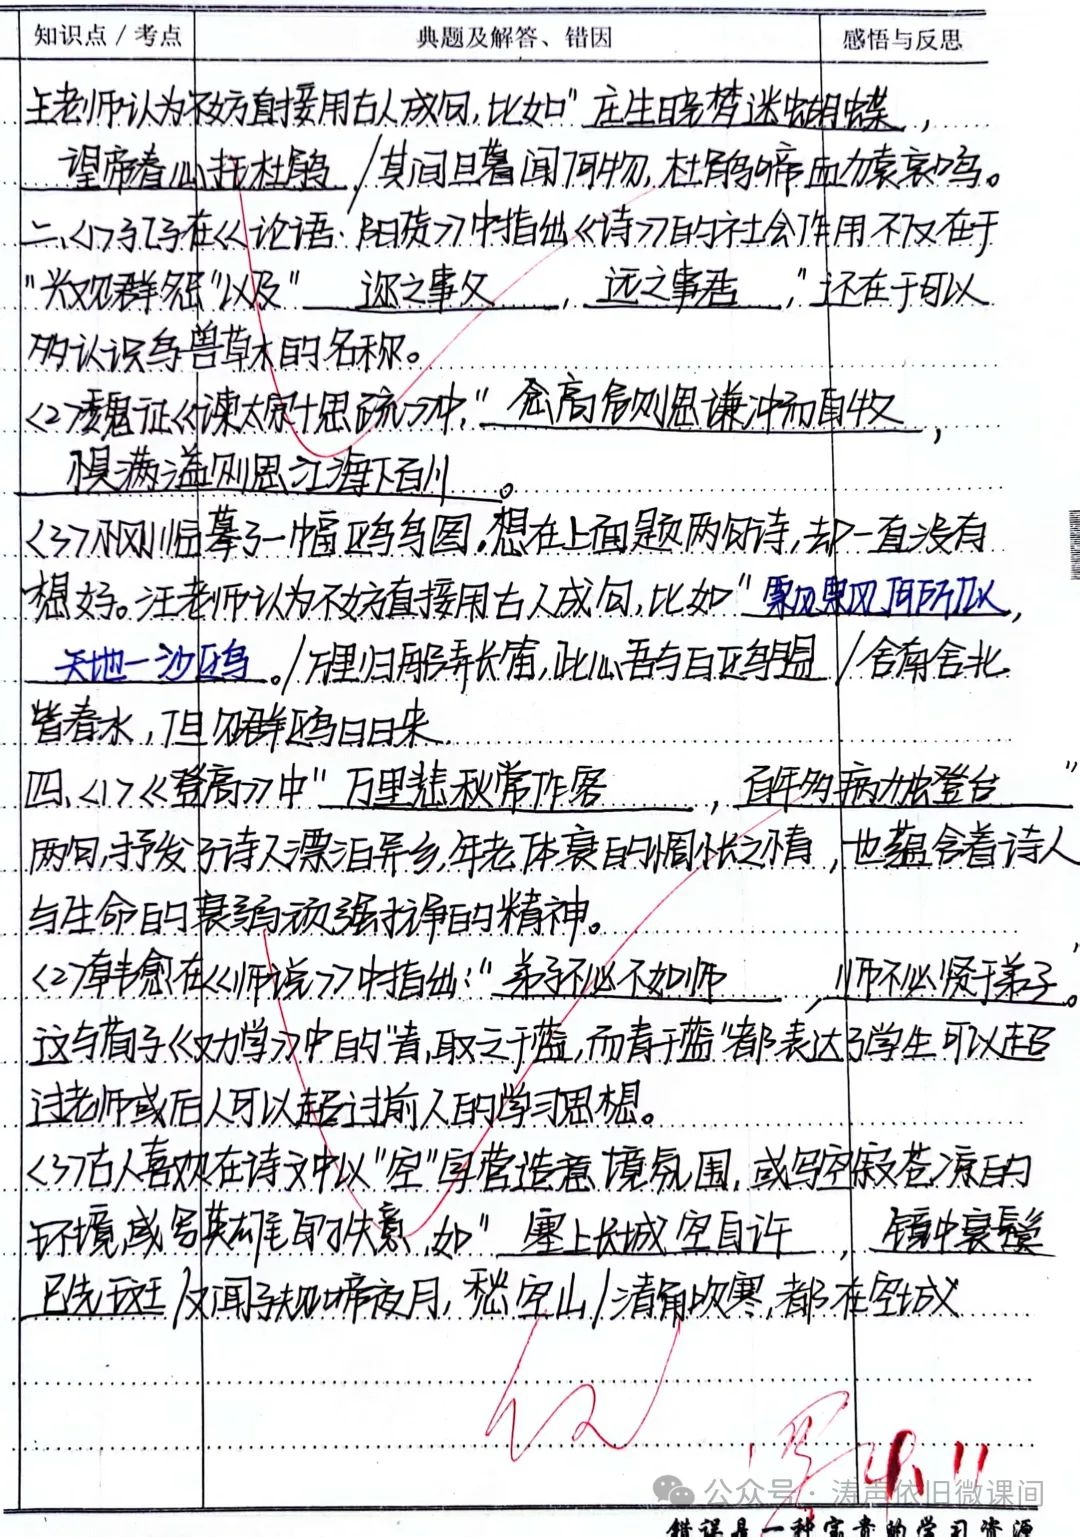 知识点/考点 典题及解答、错因 感悟与反思
王老师认为不妨直接用古人成句,比如"庄生晓梦迷蝴蝶,
望帝春心托杜鹃/其间旦暮闻何物,杜鹃啼血猿哀鸣。
二、<1>孔子在《论语·阳货》中指出《诗》的社会作用不仅在于
"兴观群怨"以及"迩之事父,远之事君,"还在于可以
多认识鸟兽草木的名称。
<2>魏征《谏太宗十思疏》中,"念高危则思谦冲而自牧,
惧满溢则思江海下百川。
<3>小刚临摹了一幅鸥鸟图,想在上面题两句诗,却一直没有
想好。汪老师认为不妨直接用古人成句,比如"飘飘何所似,
天地一沙鸥。/万里归船弄长笛,此心吾与白鸥盟/舍南舍北
皆春水,但见群鸥日日来
四、<1>《登高》中"万里悲秋常作客,百年多病独登台"
两句,抒发了诗人漂泊异乡,年老体衰的惆怅之情,也蕴含着诗人
与生命的衰弱顽强抗争的精神。
<2>韩愈在《师说》中指出:"弟子不必不如师,师不必贤于弟子"。
这与荀子《劝学》中的"青,取之于蓝,而青于蓝"都表达了学生可以超
过老师或后人可以超过前人的学习思想。
<3>古人喜欢在诗文中以"空"字营造意境氛围,或写空寂苍凉的
环境,或写英雄的失意,如"塞上长城空自许,镜中衰鬓
已先斑/又闻子规啼夜月,愁空山/清角吹寒,都在空城
公众号·涛声依旧微课间
错误是一种宝贵的学习资源